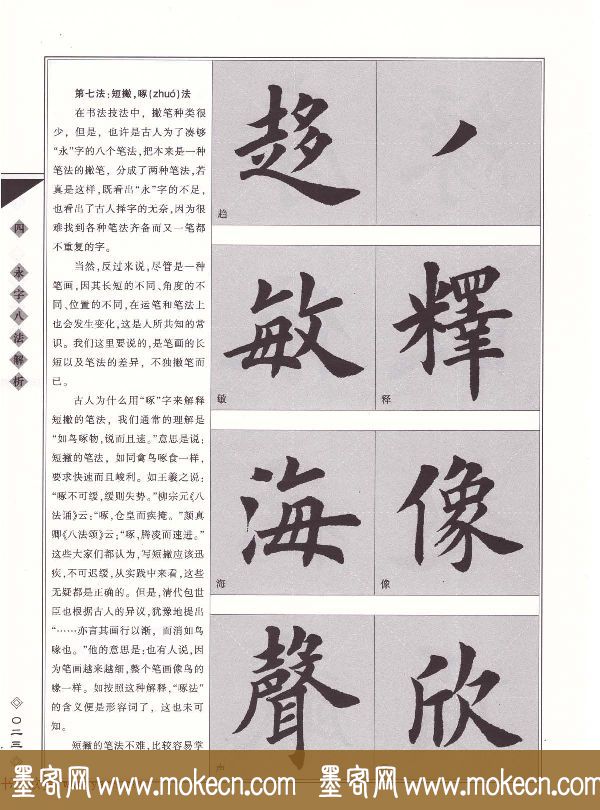 墨客网 www.mokecn.com 墨客网 www.mokecn.com
第七法:短撇,啄(zhuó)法
在书法技法中，撇笔种类很
少，但是，也许是古人为了凑够
“永”字的八个笔法,把本来是一种
笔法的撇笔，分成了两种笔法,若
真是这样,既看出“永”字的不足,
也看出了古人择字的无奈,因为很
难找到各种笔法齐备而又一笔都
不重复的字。
当然,反过来说,尽管是一种
笔画,因其长短的不同、角度的不
同、位置的不同,在运笔和笔法上
也会发生变化,这是人所共知的常
识。我们这里要说的,是笔画的长
短以及笔法的差异，不独撇笔而
已。
古人为什么用“啄”字来解释
短撇的笔法，我们通常的理解是
“如鸟啄物,锐而且速。”意思是说:
短撇的笔法，如同禽鸟啄食一样,
要求快速而且峻利。如王羲之说:
“啄不可缓,缓则失势。”柳宗元《八
法诵》云:“啄,仓皇而疾掩。”颜真
卿《八法颂》云:“啄,腾凌而速进。”
这些大家们都认为,写短撇应该迅
疾,不可迟缓,从实践中来看,这些
无疑都是正确的。但是,清代包世
臣也根据古人的异议,犹豫地提出
“……亦言其画行以渐，而消如鸟
喙也。”他的意思是:也有人说,因
为笔画越来越细,整个笔画像鸟的
喙一样。如按照这种解释,“啄法”
的含义便是形容词了，这也未可
知。
短撇的笔法不难,比较容易掌
趍
趋
敏
敏
釋
释
海
海
像
像
聲
欣
四 永字八法解析
〇二三
墨客网 www.mokecn.com 墨客网 www.mokecn.com